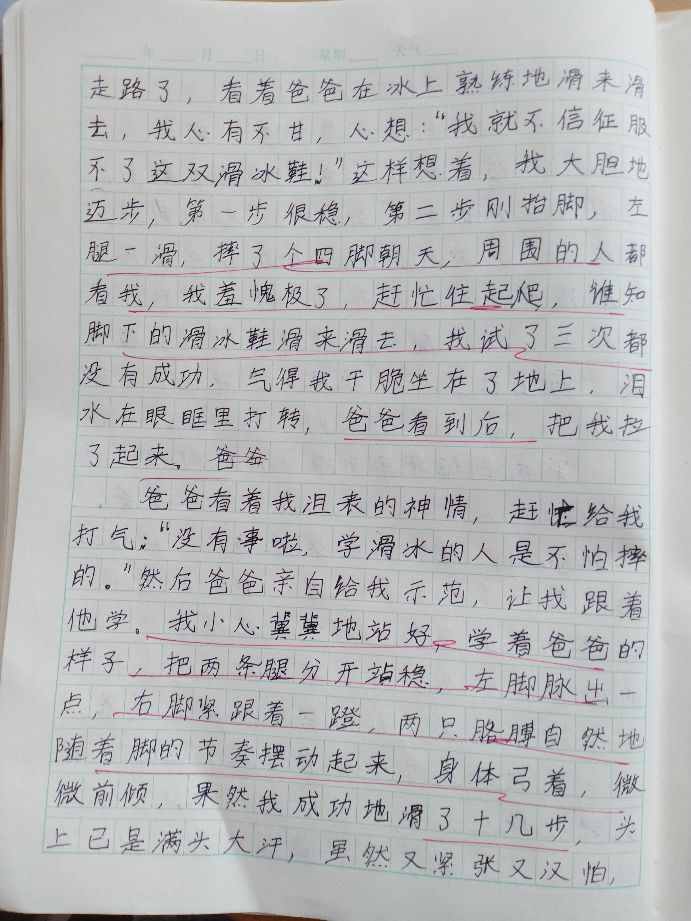 年 月 日 星期 天气
走路了，看着爸爸在冰上熟练地滑来滑
去，我心有不甘，心想：“我就不信征服
不了这双滑冰鞋！”这样想着，我大胆地
迈步，第一步很稳，第二步刚抬脚，左
腿一滑，摔了个四脚朝天，周围的人都
看我，我羞愧极了，赶忙往起爬，谁知
脚下的滑冰鞋滑来滑去，我试了三次都
没有成功，气得我干脆坐在了地上，泪
水在眼眶里打转，爸爸看到后，把我拉
了起来。爸爸
爸爸看着我沮丧的神情，赶忙给我
打气：“没有事啦，学滑冰的人是不怕摔
的。”然后爸爸亲自给我示范，让我跟着
他学。我小心冀冀地站好，学着爸爸的
样子，把两条腿分开站稳，左脚脉出一
点，右脚紧跟着一蹬，两只胳膊自然地
随着脚的节奏摆动起来，身体弓着，微
微前倾，果然我成功地滑了十几步，头
上已是满头大汗，虽然又紧张又汉怕，